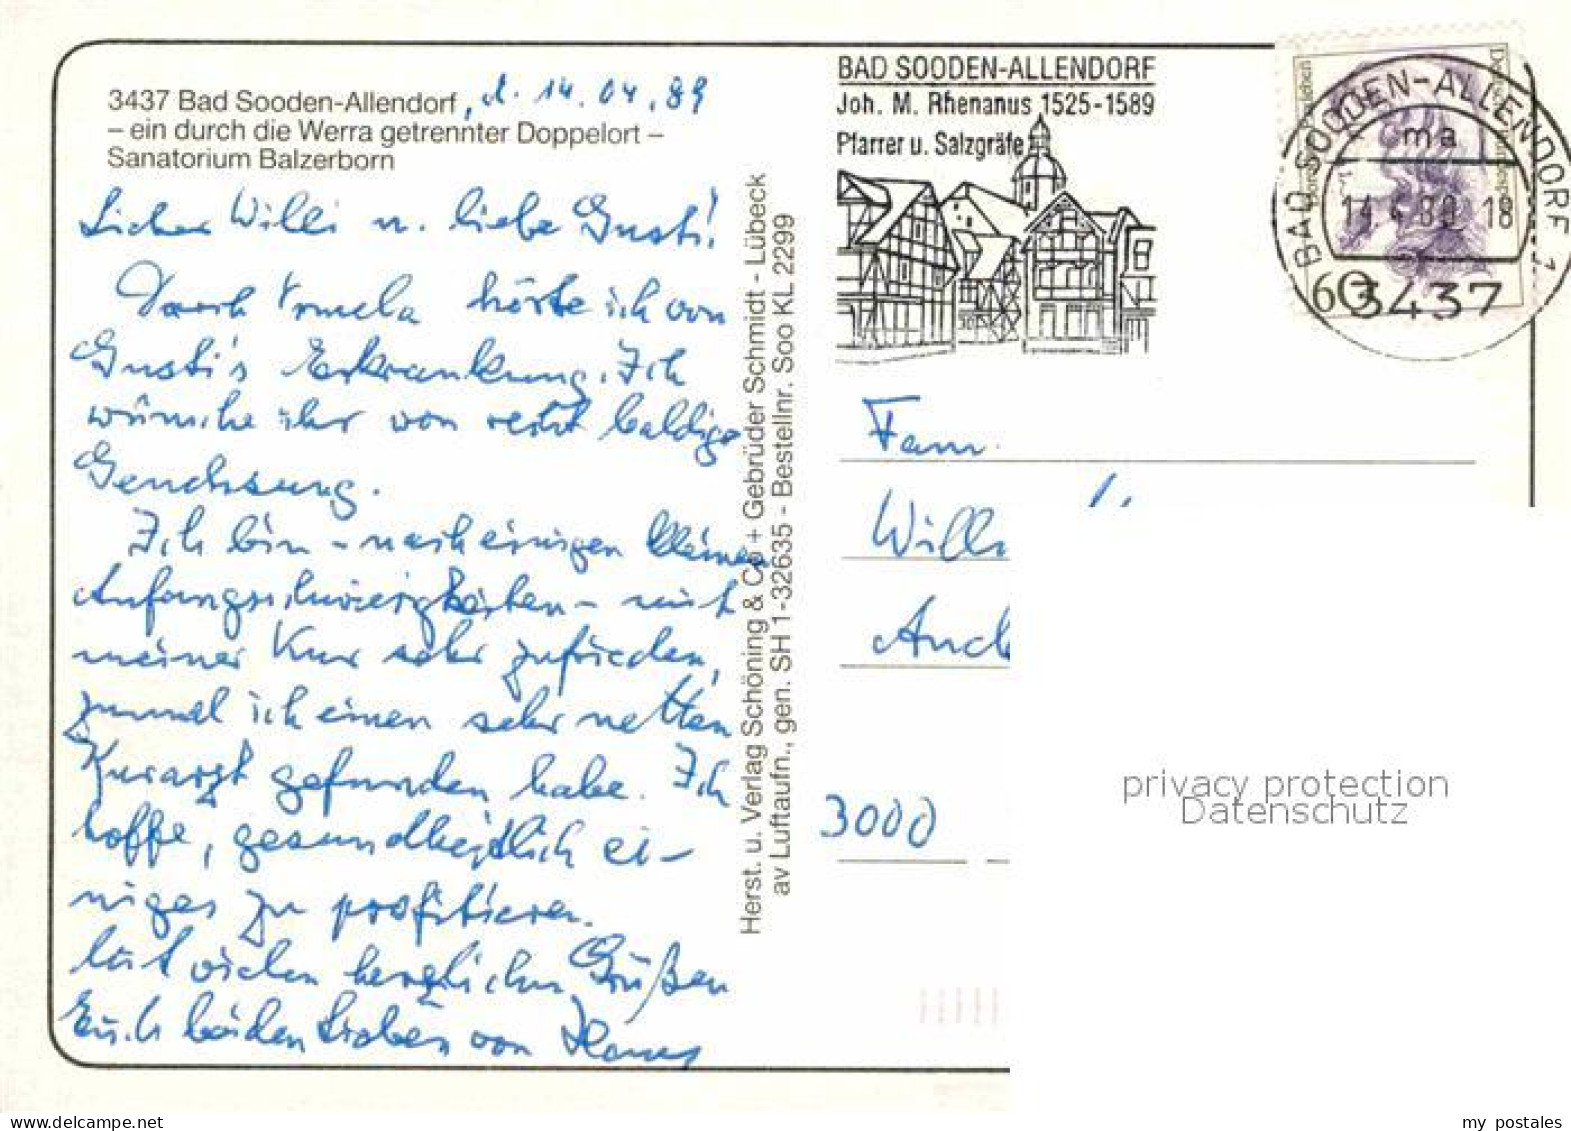 3437 Bad Sooden-Allendorf, d. 14.04.89
– ein durch die Werra getrennter Doppelort –
Sanatorium Balzerborn
Lieber Willi u. liebe Gusti!
Durch Irmela hörte ich von
Gusti's Erkrankung. Ich
wünsche ihr von recht baldige
Genehsung.
Ich bin – nach einigen kleinen
Anfangsschwierigkeiten – mit
meiner Kur sehr zufrieden,
zumal ich einen sehr netten
Kurarzt gefunden habe. Ich
hoffe, gesundheitlich ei-
niges zu profitieren.
Mit vielen herzlichen Grüßen
Euch beiden Lieben von
Herst. u. Verlag Schöning & Co + Gebrüder Schmidt - Lübeck
av Luftaufn., gen. SH 1-32635 - Bestellnr. Soo KL 2299
BAD SOODEN-ALLENDORF
Joh. M. Rhenanus 1525-1589
Pfarrer u. Salzgräfe
BAD SOODEN-ALLENDORF 1
ma
14.4.89 18
3437
60
Fam.
Willi
3000
privacy protection
Datenschutz
my postales
www.delcampe.net